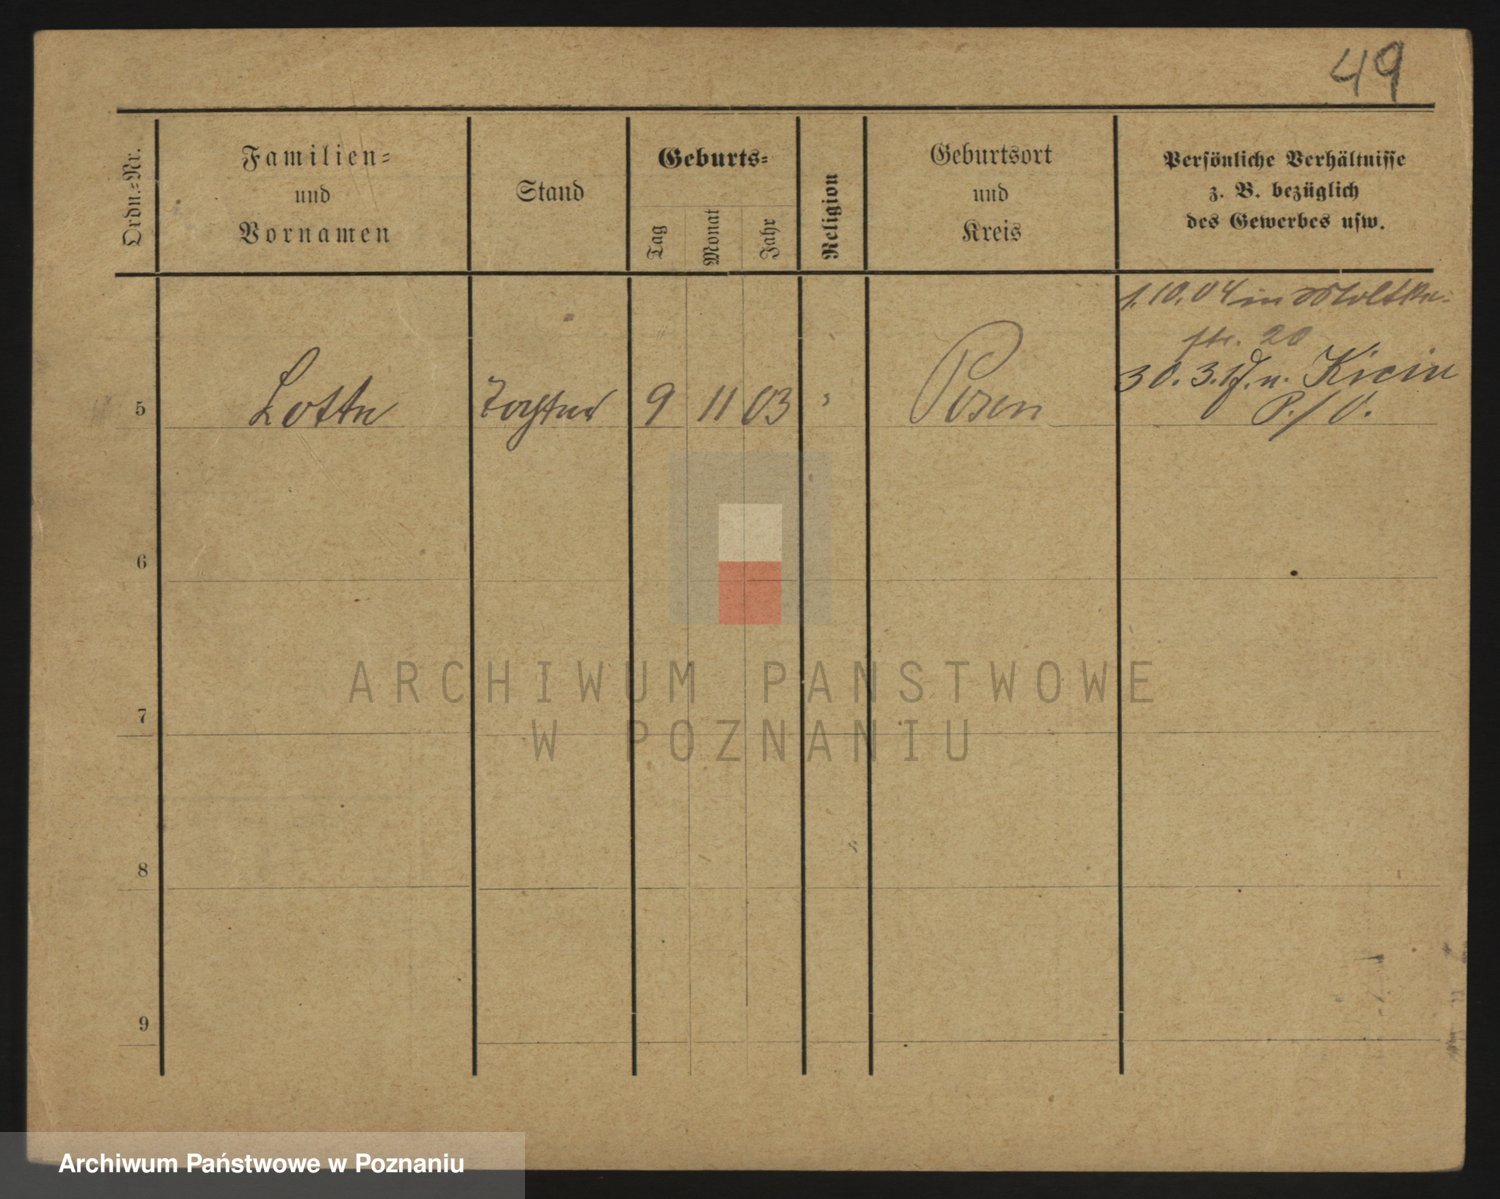 49
Ordn.-Nr.
Familien-
und
Vornamen
Stand
Geburts-
Tag
Monat
Jahr
Religion
Geburtsort
und
Kreis
Persönliche Verhältnisse
z. B. bezüglich
des Gewerbes usw.
1.10.04 in Moltke-
str. 20
5 Lotte Tochter 9 11 03 " Posen
30.3.17. n. Kicin
P./O.
6
7
8
9
ARCHIWUM PANSTWOWE
W POZNANIU
Archiwum Państwowe w Poznaniu